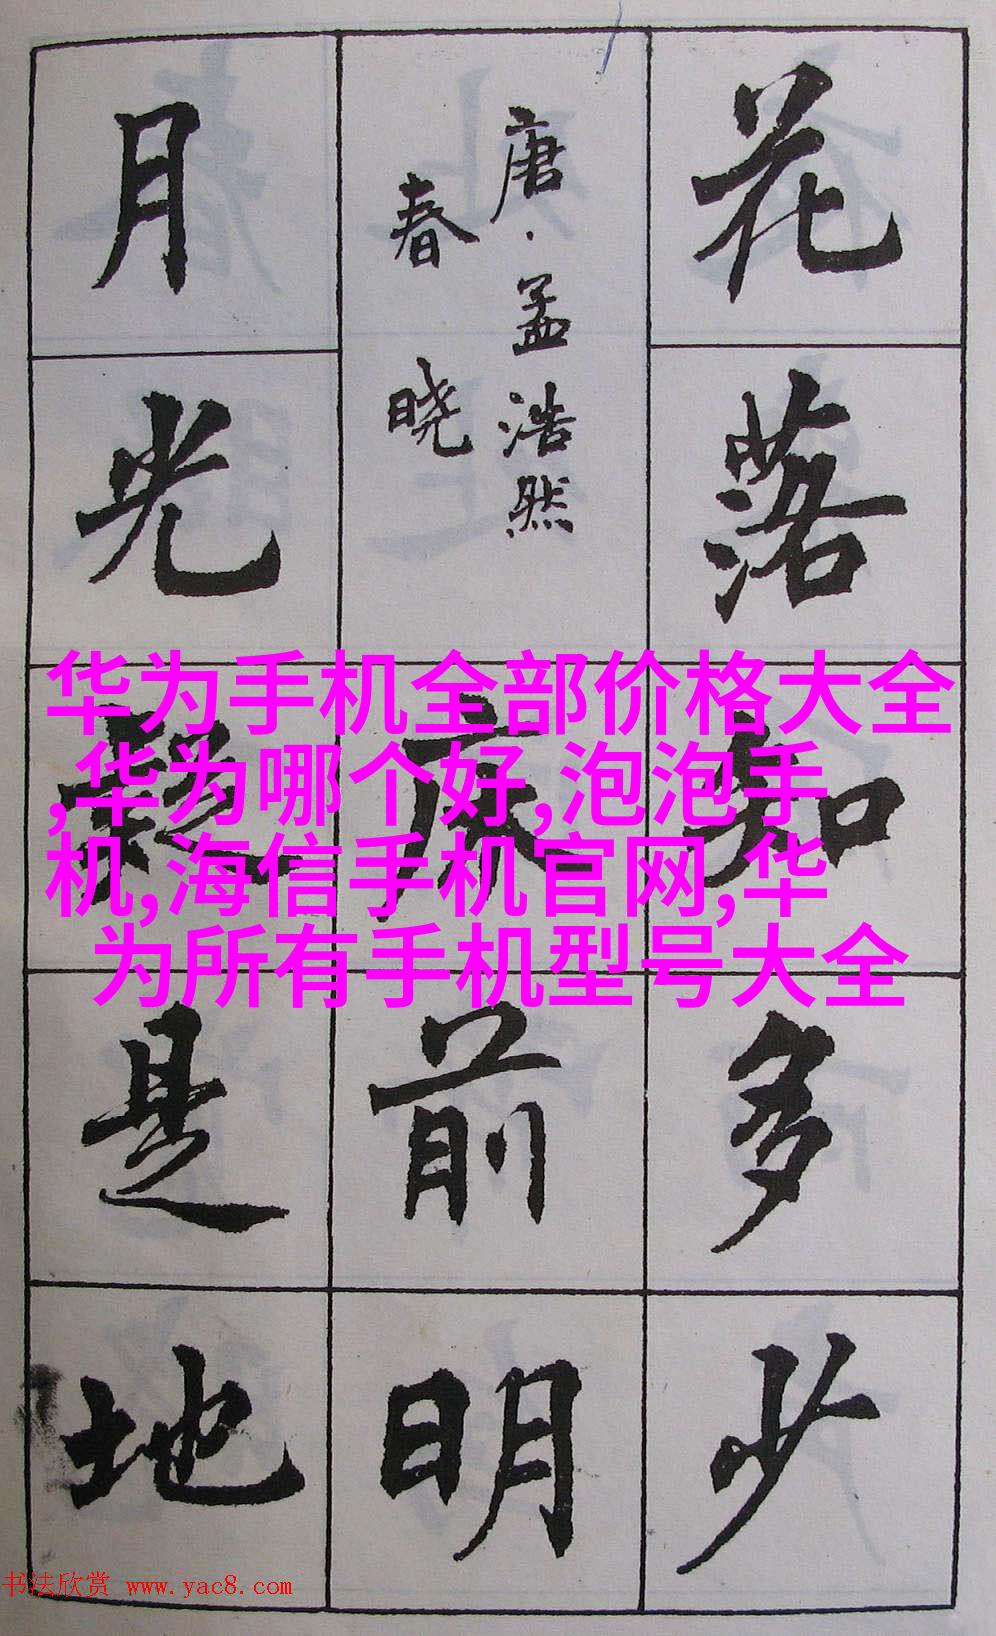 花落知多少
唐·孟浩然
春晓
床前明
月光疑是地
华为手机全部价格大全
,华为哪个好,泡泡手
机,海信手机官网,华
为所有手机型号大全
书法欣赏 www.yac8.com